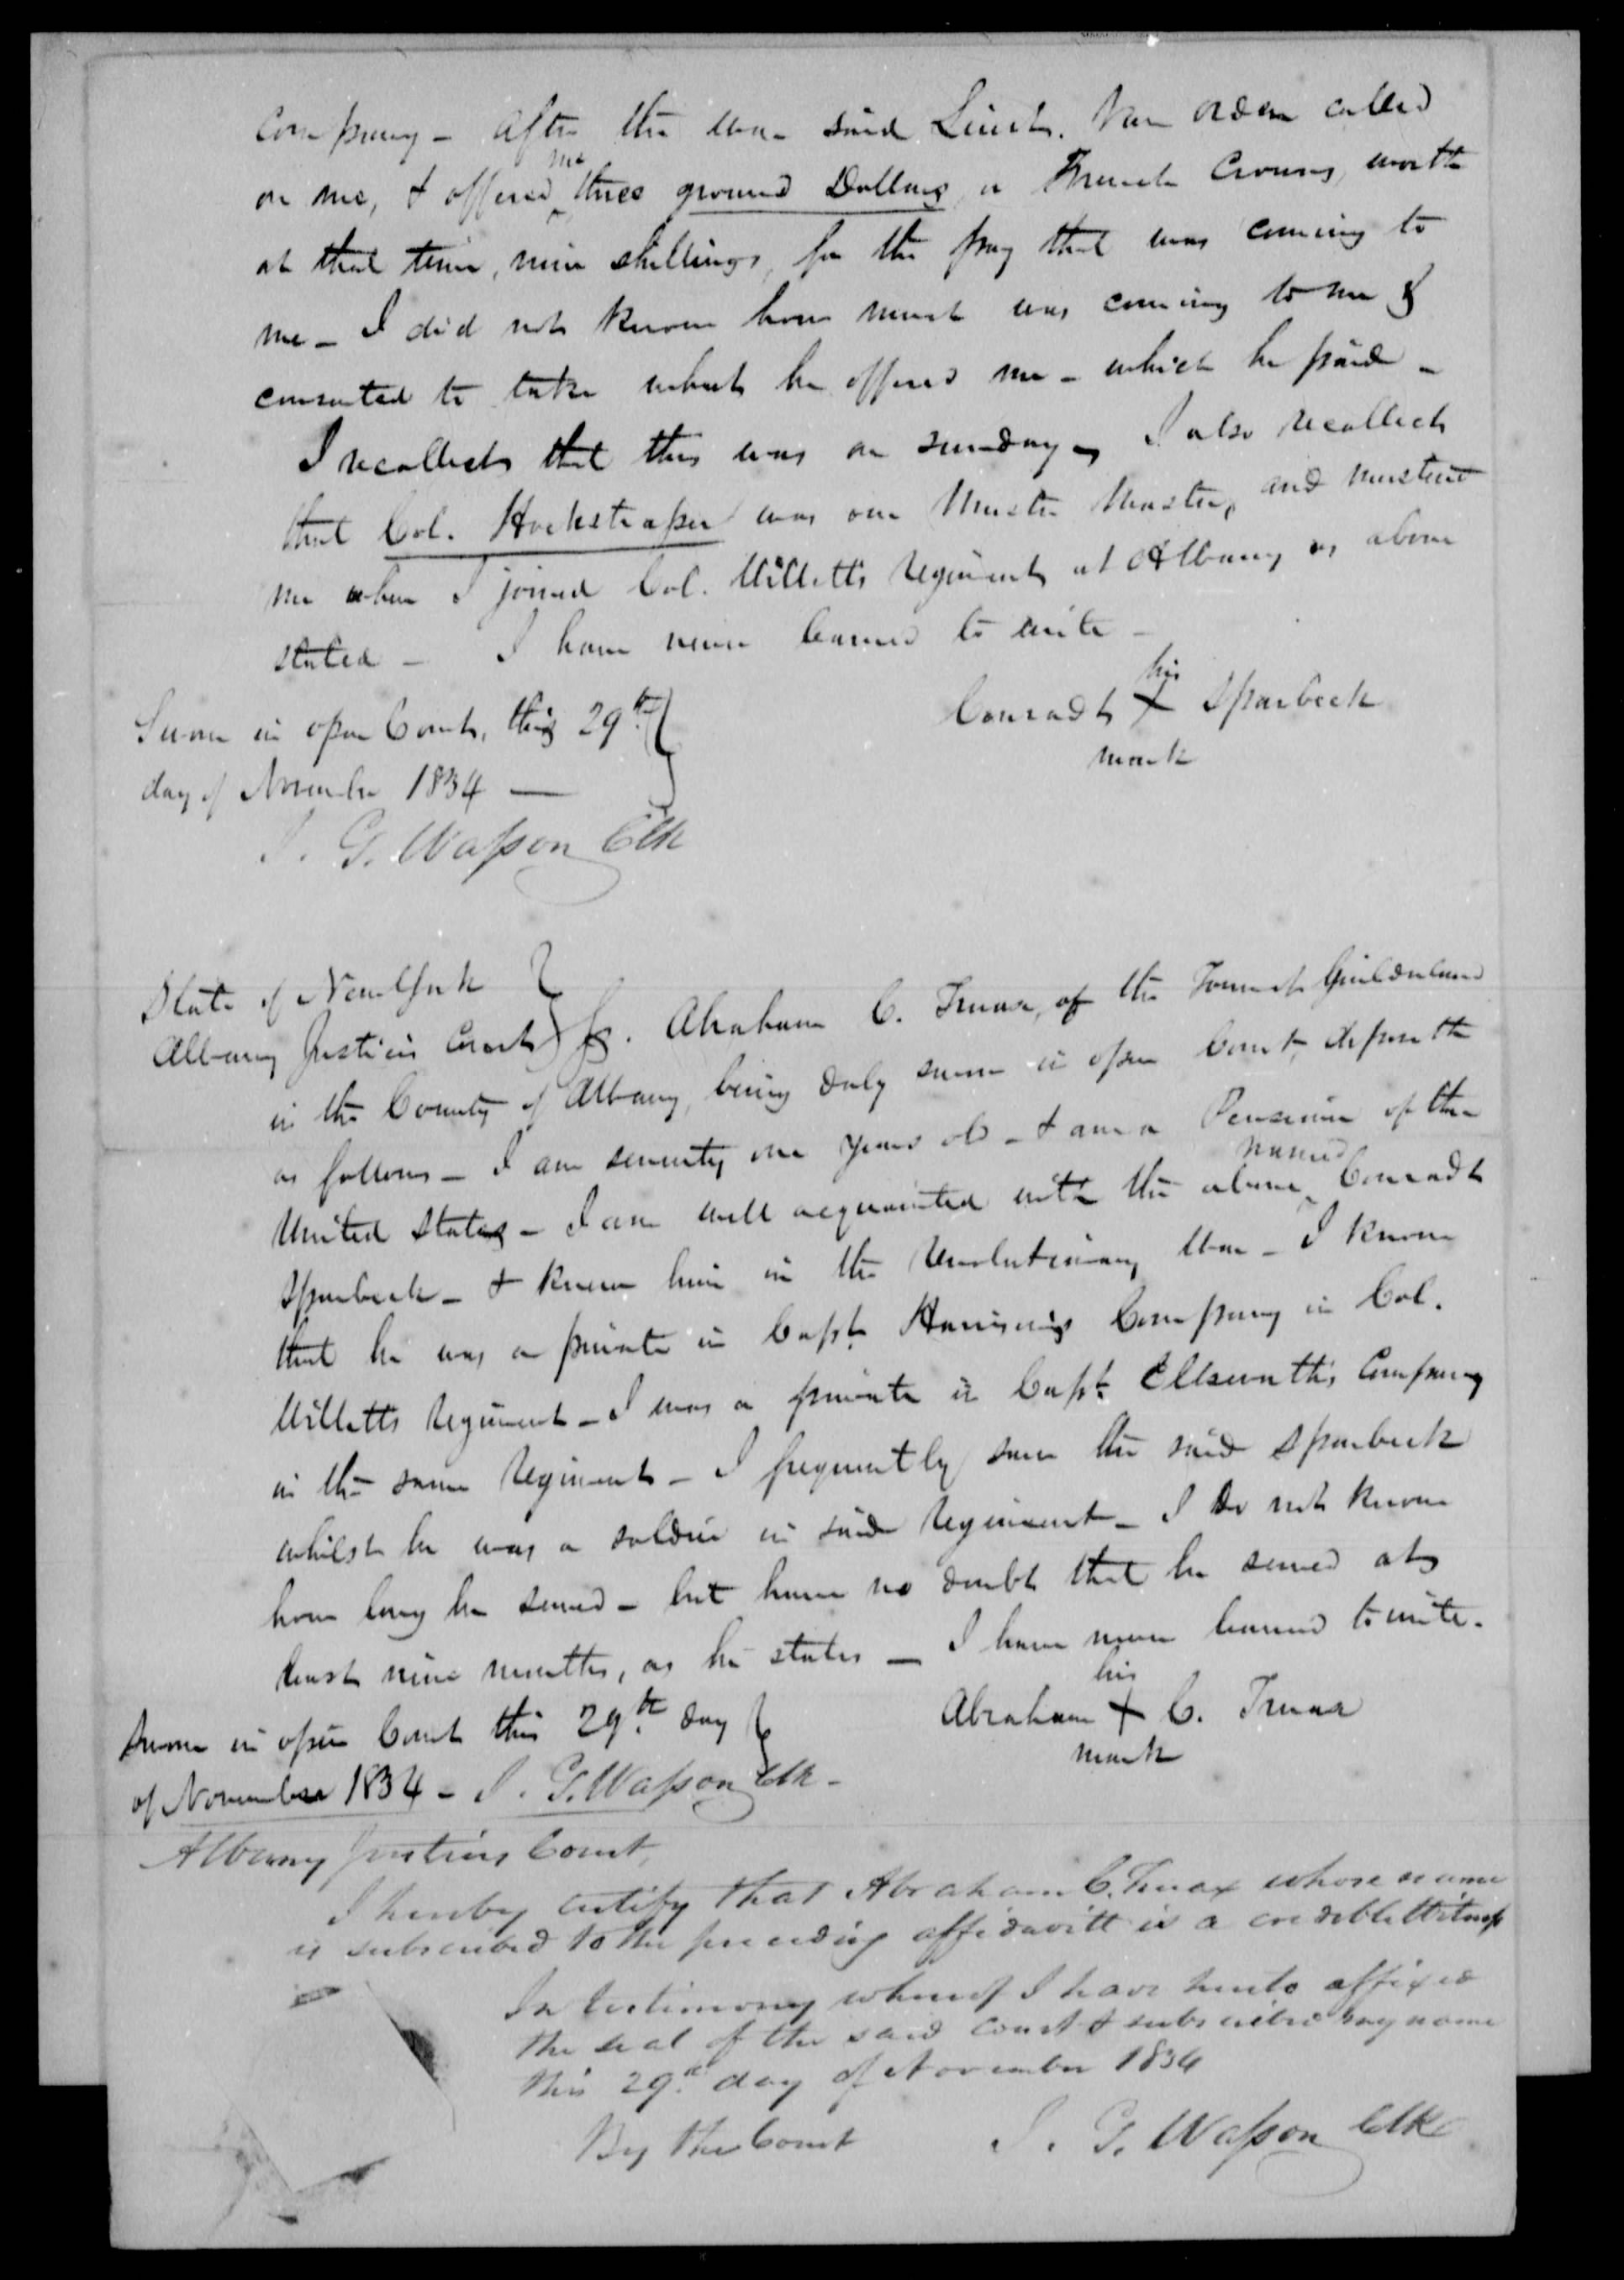 Company - after the war said Lieut. Van Orden called
on me, & offered me three ground Dollars, or French Crowns, worth
at that time, nine shillings, for the pay that was coming to
me - I did not know how much was coming to me &
consented to take what he offered me - which he paid -
I recollect that this was on sunday - I also recollect
that Col. Hockstrasser was our Muster Master, and mustered
me when I joined Col. Willetts Regiment at Albany as above
stated - I have never learned to write -
Conradt his X mark Sparbeck
Sworn in open Court, this 29th
day of November 1834 -
J. G. Wasson Clk
State of New York
Albany Justices Court ss. Abraham C. Truax, of the Town of Guilderland
in the County of Albany, being duly sworn in open Court, deposeth
as follows - I am seventy one years old - & am a Pensioner of the
United States - I am well acquainted with the above named Conradt
Sparbeck - & knew him in the Revolutionary War - I know
that he was a private in Capt. Harrisons Company in Col.
Willetts Regiment - I was a private in Capt. Ellsworth's Company
in the same Regiment - I frequently saw the said Sparbeck
whilst he was a soldier in said Regiment - I do not know
how long he served - but have no doubt that he served at
least nine months, as he states - I have never learned to write.
Abraham his X mark C. Truax
Sworn in open Court this 29th day
of November 1834 - J. G. Wasson Clk -
Albany Justices Court,
I hereby certify that Abraham C. Truax whose name
is subscribed to the preceding affidavitt is a credible Witness
In testimony whereof I have hereto affixed
the seal of the said court & subscribed my name
this 29th day of November 1834
By the Court J. G. Wasson Clk